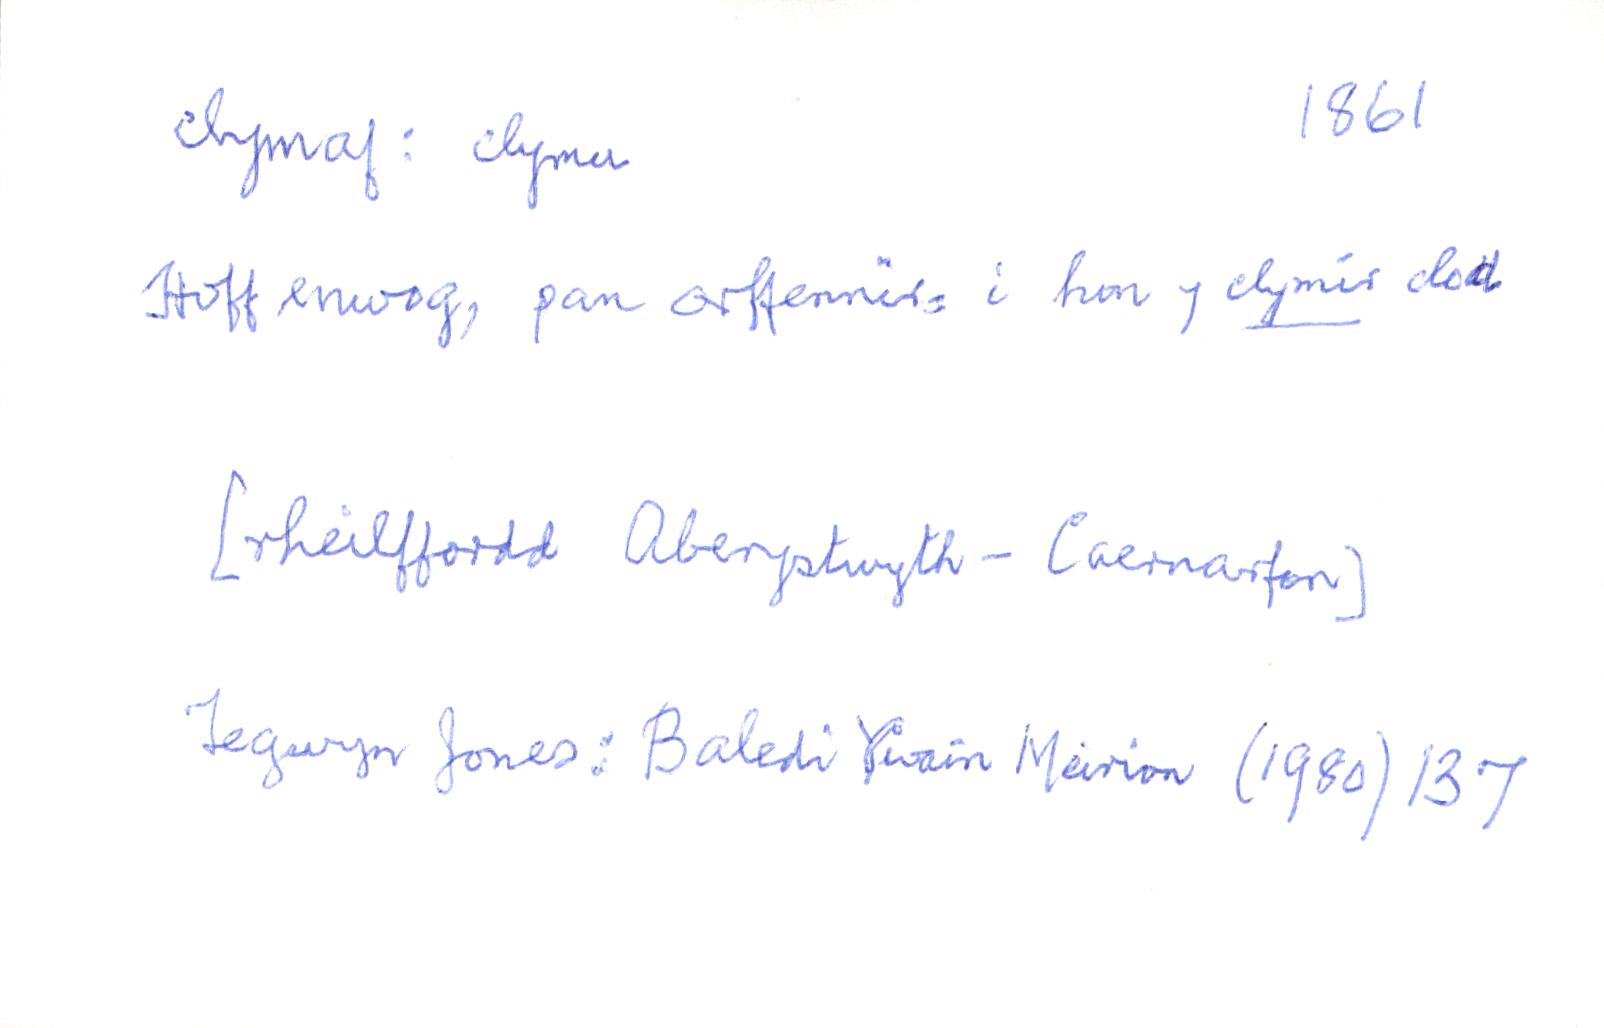 clymaf: clymu 1861
Hoff enwog, pan orffennïr, i hon y clymir clod
[rheilffordd Aberystwyth - Caernarfon]
Tegwyn Jones: Baledi Ywain Meirion (1980) 137